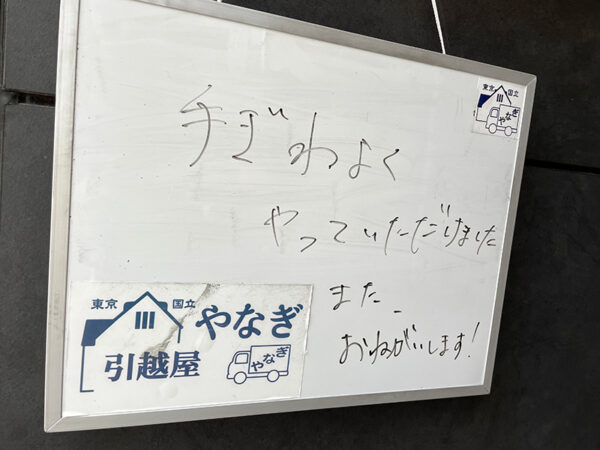 東京 国立
やなぎ
手ぎわよく
やっていただだけました
また
おねがいします!
東京 国立
やなぎ
引越屋
やなぎ